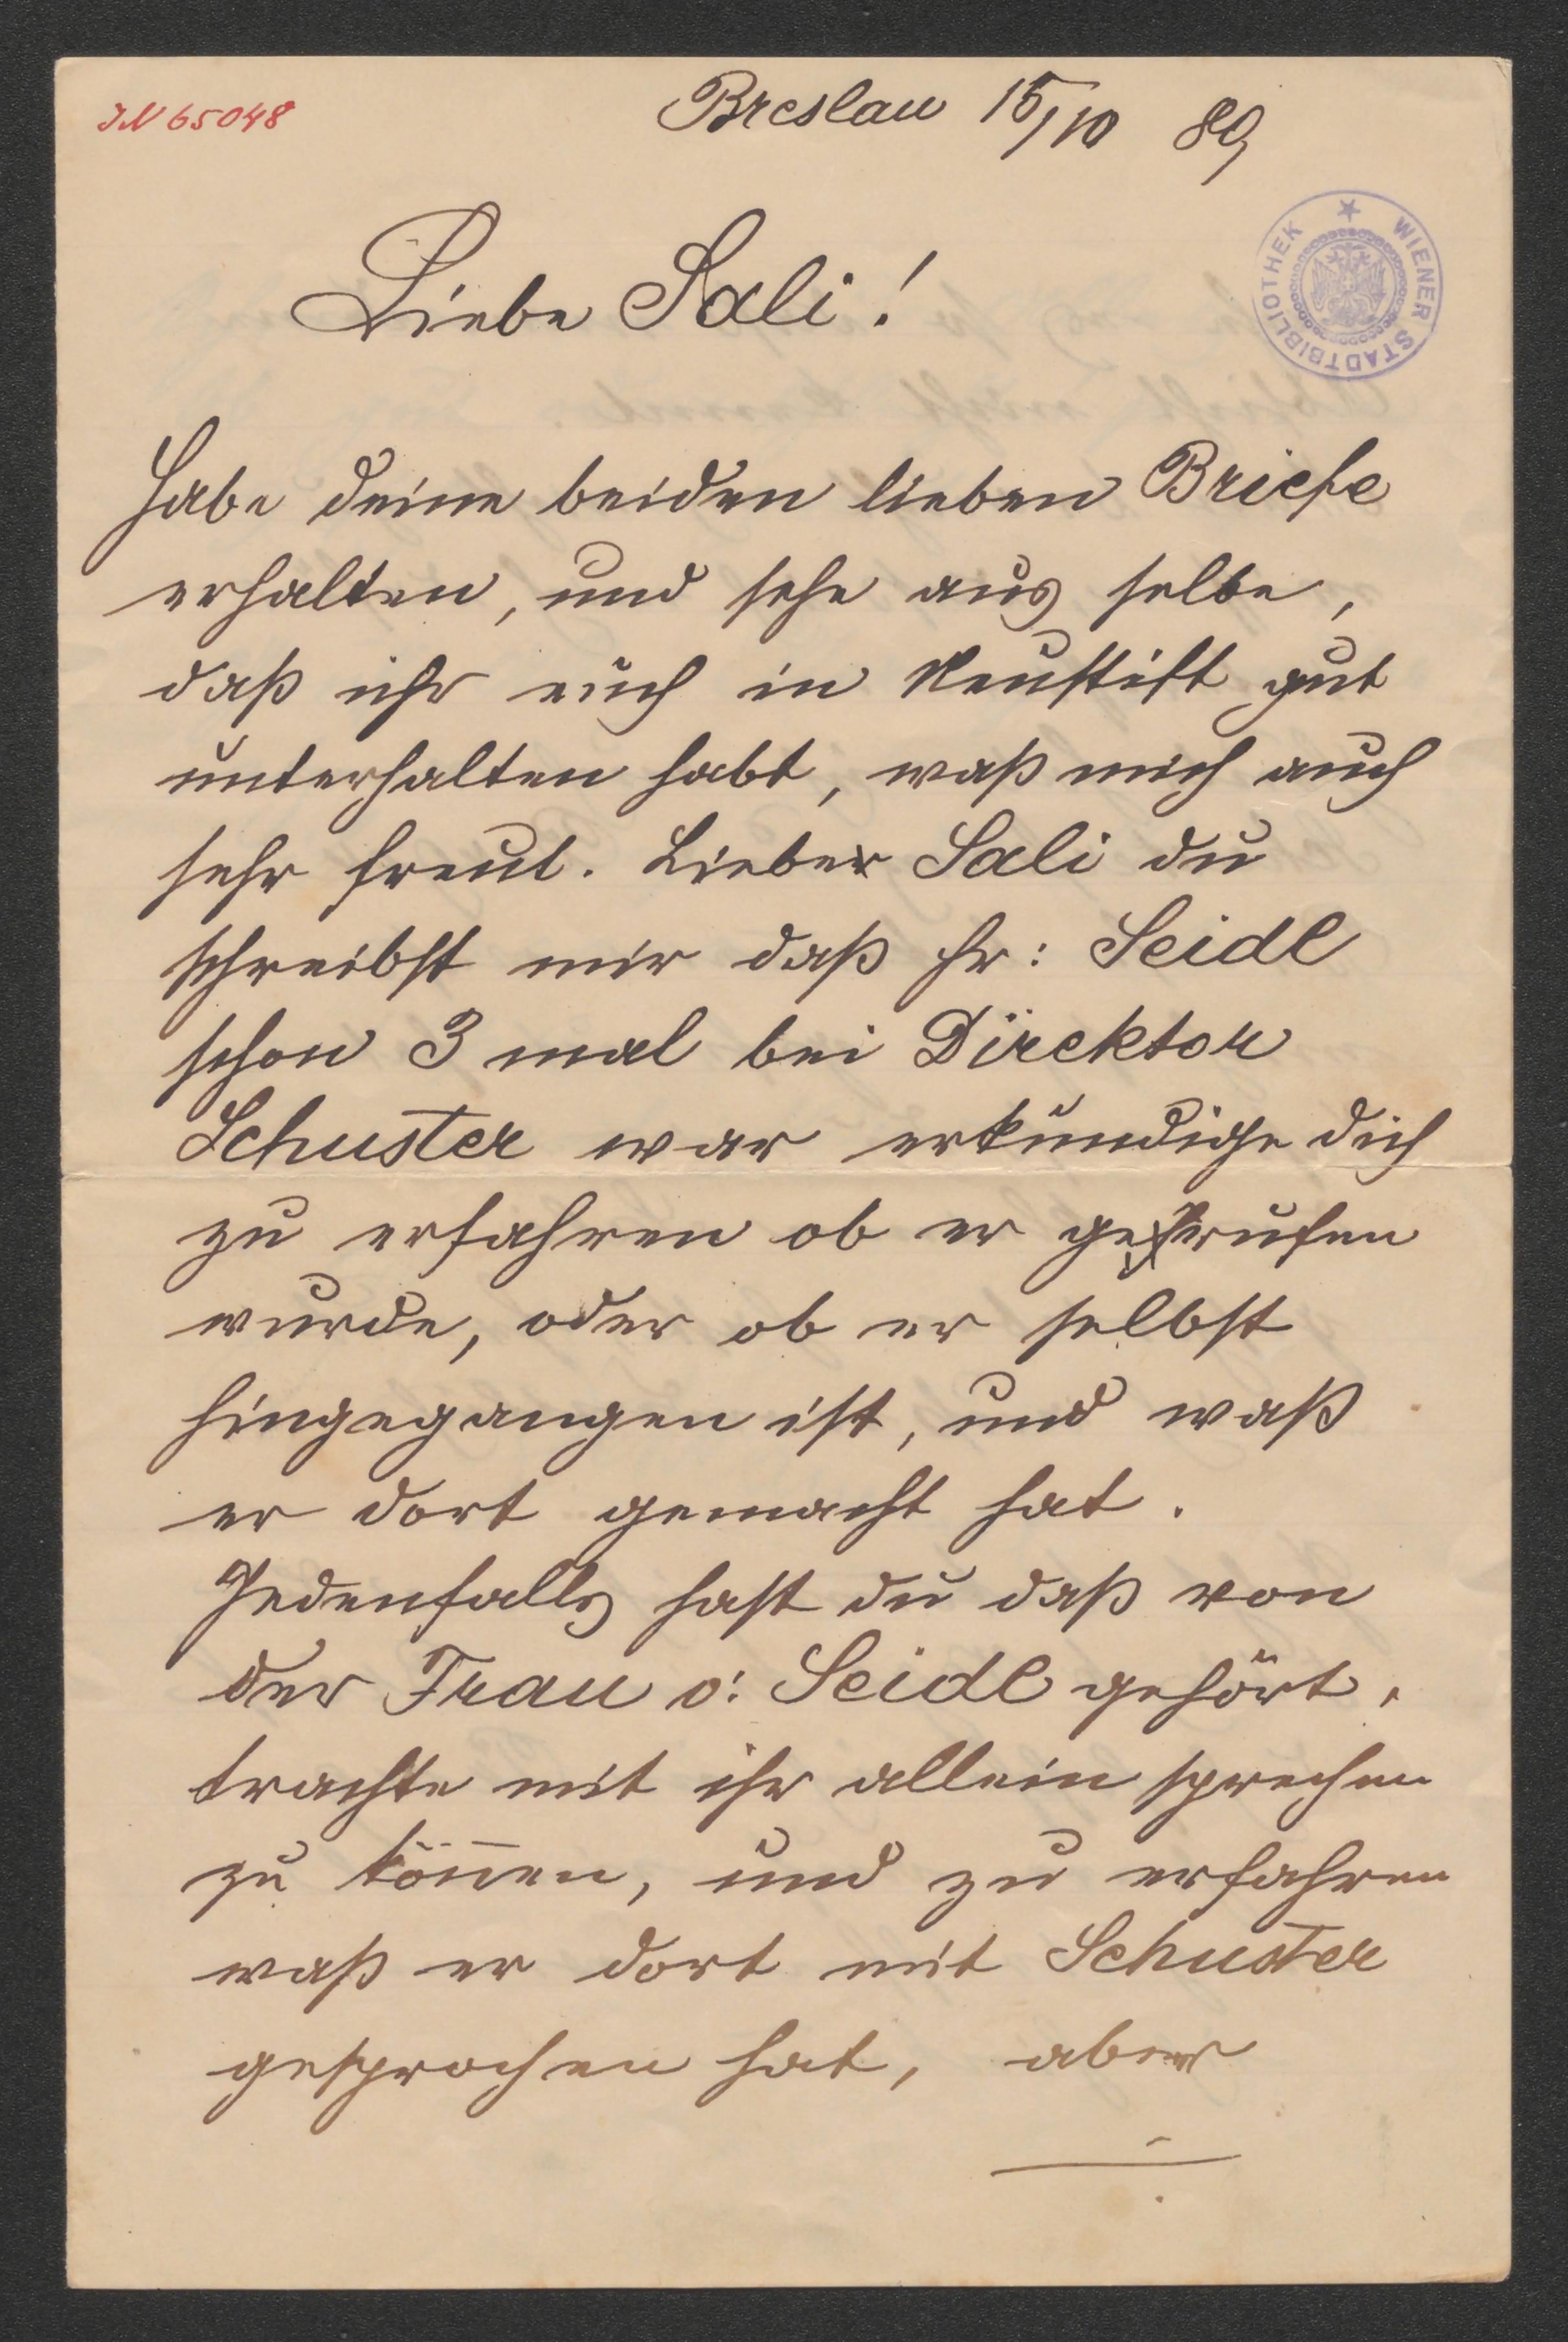 IN 65048
Breslau 15/10 89
WIENER STADTBIBLIOTHEK
Liebe Sali!
Habe deine beiden lieben Briefe
erhalten, und sehe aus selbe,
daß ihr euch in Neustift gut
unterhalten habt, waß mich auch
sehr freut. Lieber Sali du
schreibst mir daß Hr: Seidl
schon 3 mal bei Direktor
Schuster war erkundige dich
zu erfahren ob er gerufen
wurde, oder ob er selbst
hingegangen ist, und waß
er dort gemacht hat.
Jedenfalls hast du daß von
der Frau v: Seidl gehört,
trachte mit ihr allein sprechen
zu kön̄en, und zu erfahren
waß er dort mit Schuster
gesprochen hat, aber